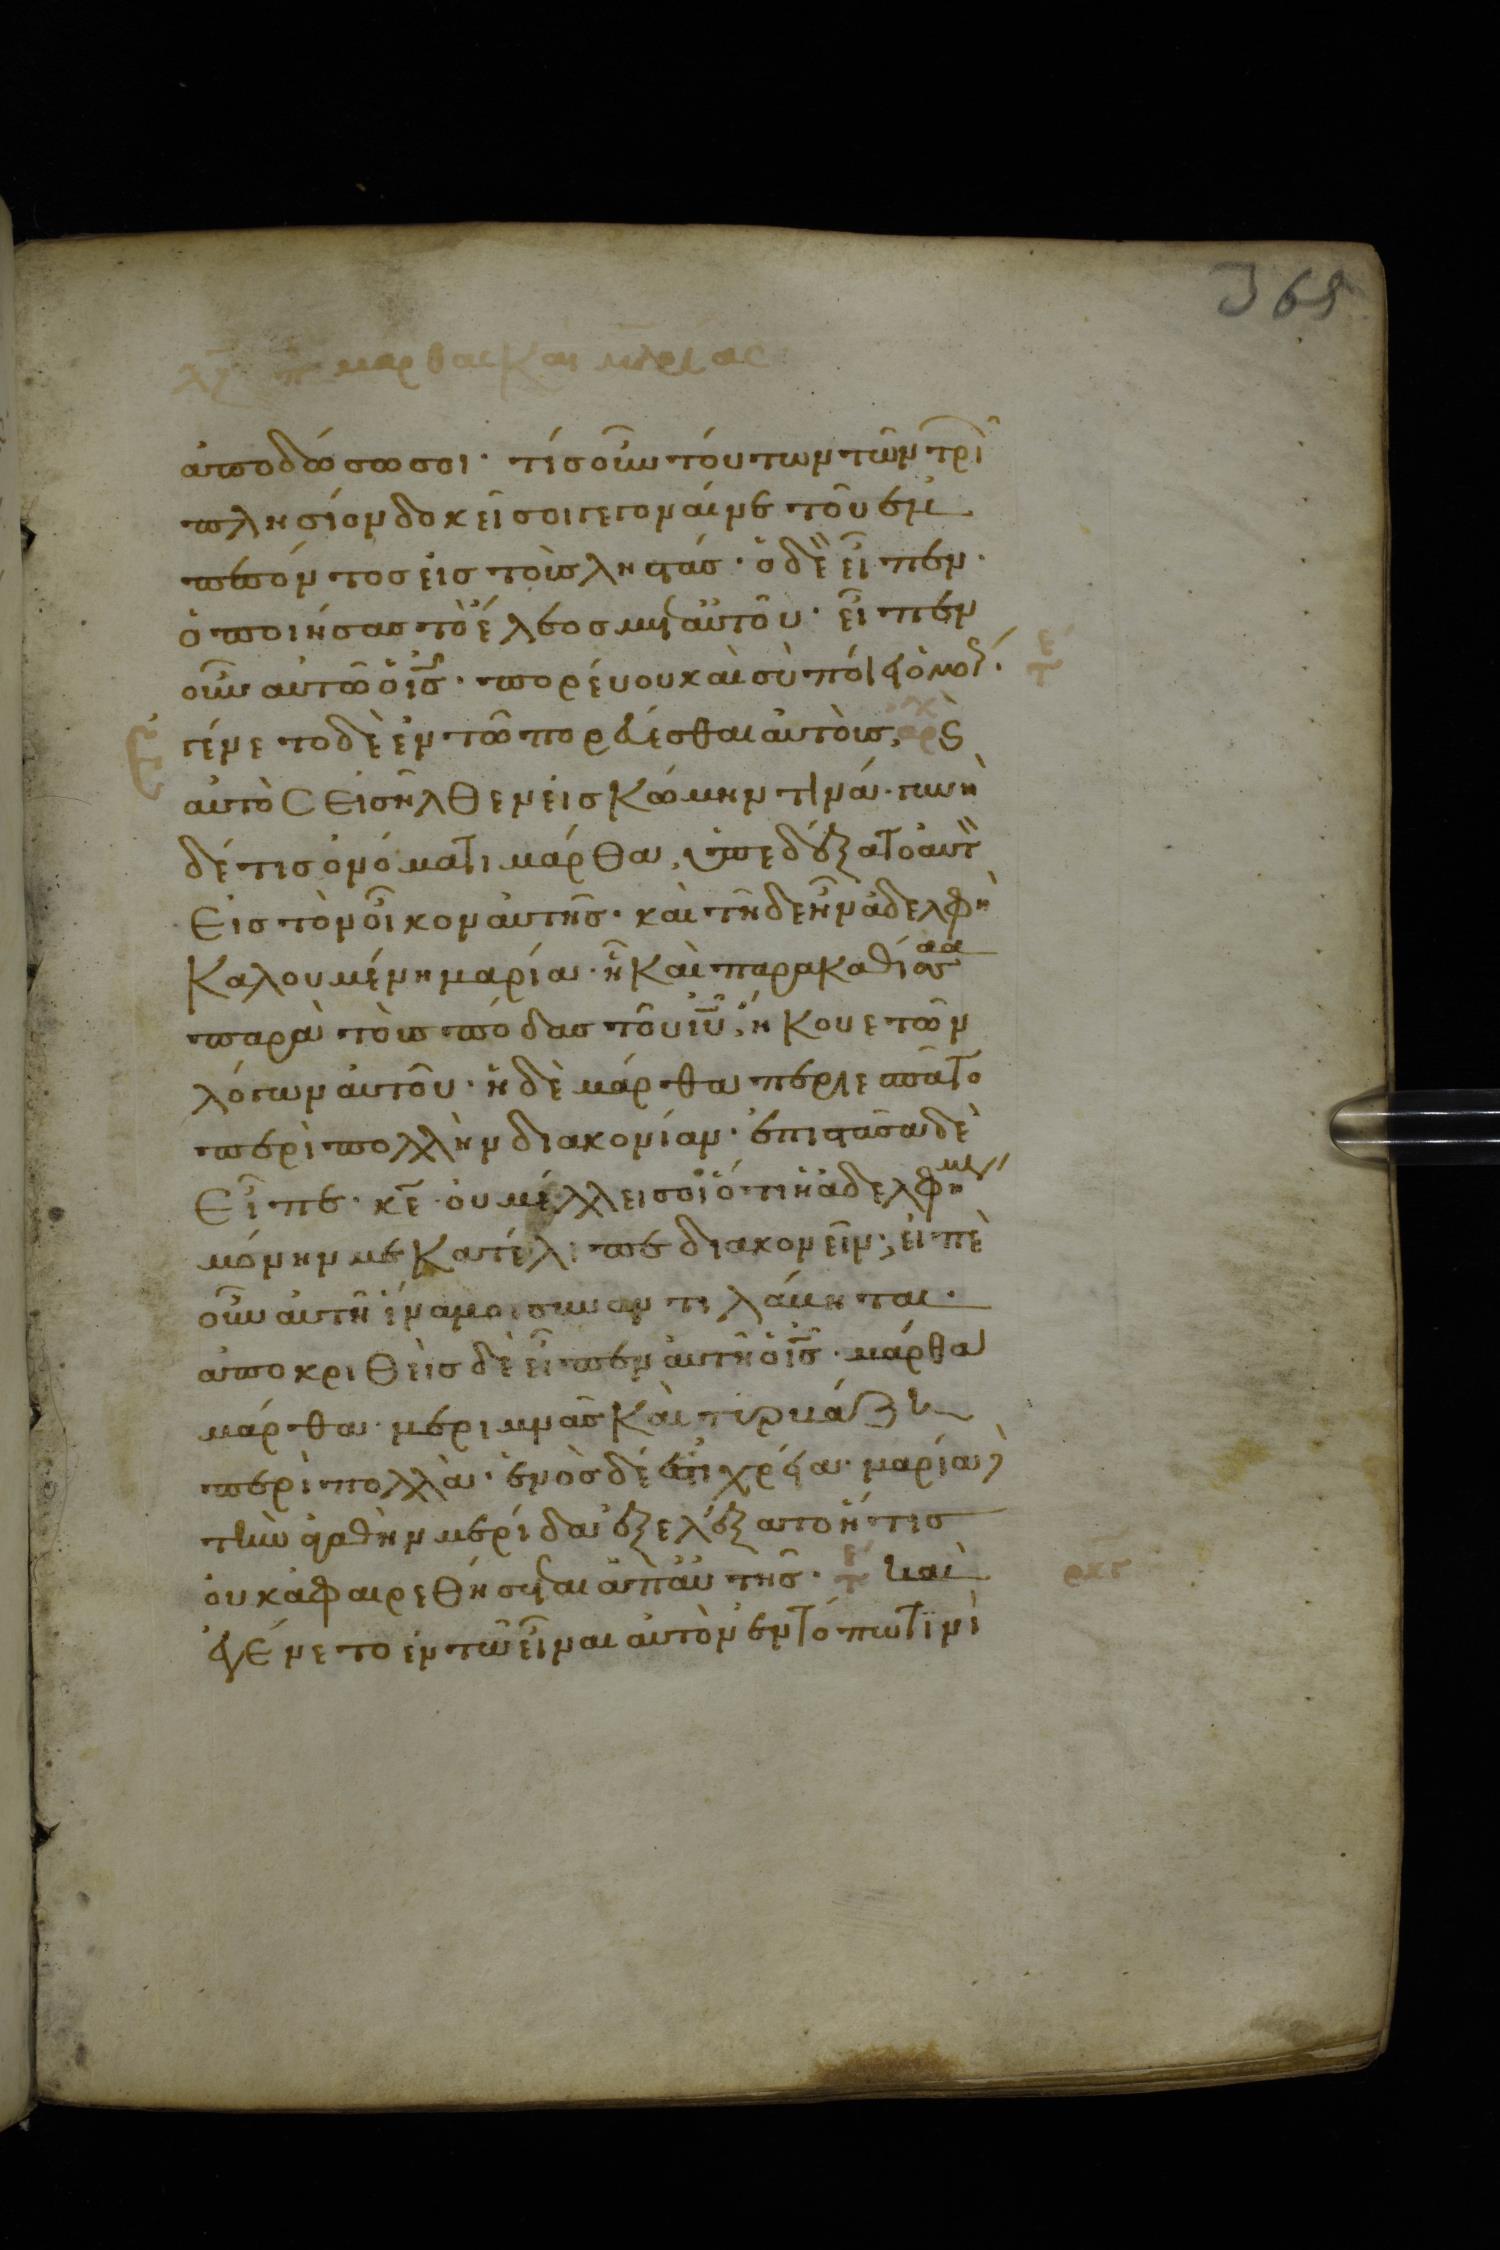 365
λζ π μαρθας και μαριας
ἀποδώσω σοι· τίς οὖν τούτων τῶν τριῶ
πλησίον δοκεῖ σοι γεγοναίναι τοῦ ἐμ
πεσόντος εἰς τοὺς λῃστάς· ὁ δὲ εἶπεν·
ὁ ποιήσας τὸ ἔλεος μετ' αὐτοῦ· εἶπεν
οὖν αὐτῶ ὁ ις· πορεύου καὶ σὺ ποίει ὁμοί·
γένετο δὲ ἐν τῶ πορεύεσθαι αὐτοὺς, κ
αὐτὸς εἰσῆλθεν εἰς κώμην τινά· γυνὴ
δέ τις ὀνόματι μάρθα, ὑπεδέξατο αὐτὸ
εἰς τὸν οἶκον αὐτῆς· καὶ τῆδε ἦν ἀδελφὴ
καλουμένη μαρία· ἣ καὶ παρακαθίσασα
παρὰ τοὺς πόδας τοῦ ιυ, ἤκουε τῶν
λόγων αὐτοῦ· ἡ δὲ μάρθα περιεσπᾶτο
περὶ πολλὴν διακονίαν· ἐπιστᾶσα δὲ
εἶπε· κε· οὐ μέλλει σοι ὅτι ἡ ἀδελφή μου
μόνην με κατέλιπε διακονεῖν; εἰπὲ
οὖν αὐτῆ ἵνα μοι συναντιλάβηται·
ἀποκριθεὶς δὲ εἶπεν αὐτῆ ὁ ις· μάρθα
μάρθα· μεριμνᾶς καὶ τυρβάζη
περὶ πολλὰ· ἑνὸς δέ ἐστι χρεία· μαρία δὲ
τὴν ἀγαθὴν μερίδα ἐξελέξατο ἥτις
οὐκ ἀφαιρεθήσεται ἀπ' αὐτῆς· τε καὶ
ρκς
ἐγένετο ἐν τῶ εἶναι αὐτὸν ἐν τόπω τινὶ